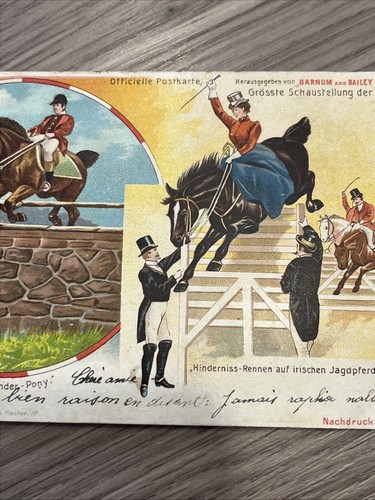 Officielle Postkarte, Herausgegeben von BARNUM AND BAILEY
Grösste Schaustellung der
nder-Pony"
"Hinderniss-Rennen auf irischen Jagdpferd
Chère amie
bien raison en disant: Jamais
Nachdruck